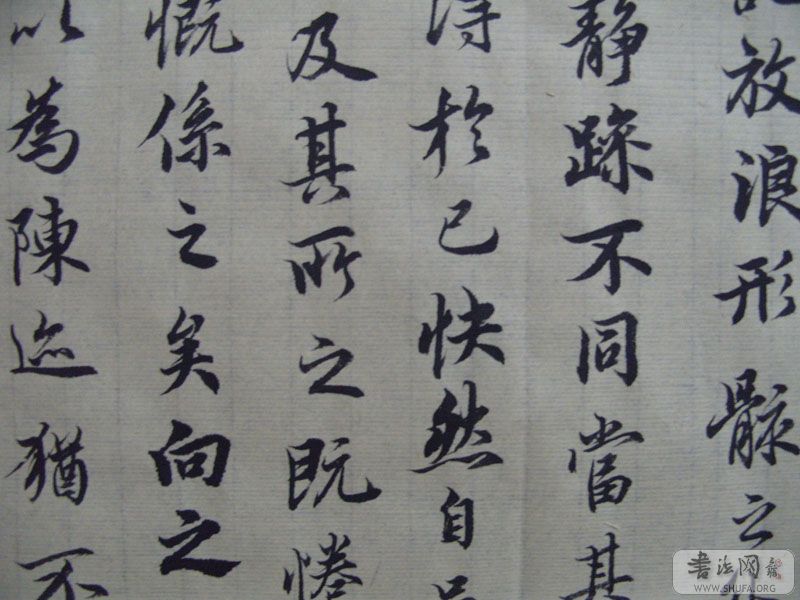 放浪形骸之
静踪不同當其
得於已快然自足
及其所之既惓
慨係之矣向之
以為陳迹猶不
書法网
WWW.SHUFA.ORG